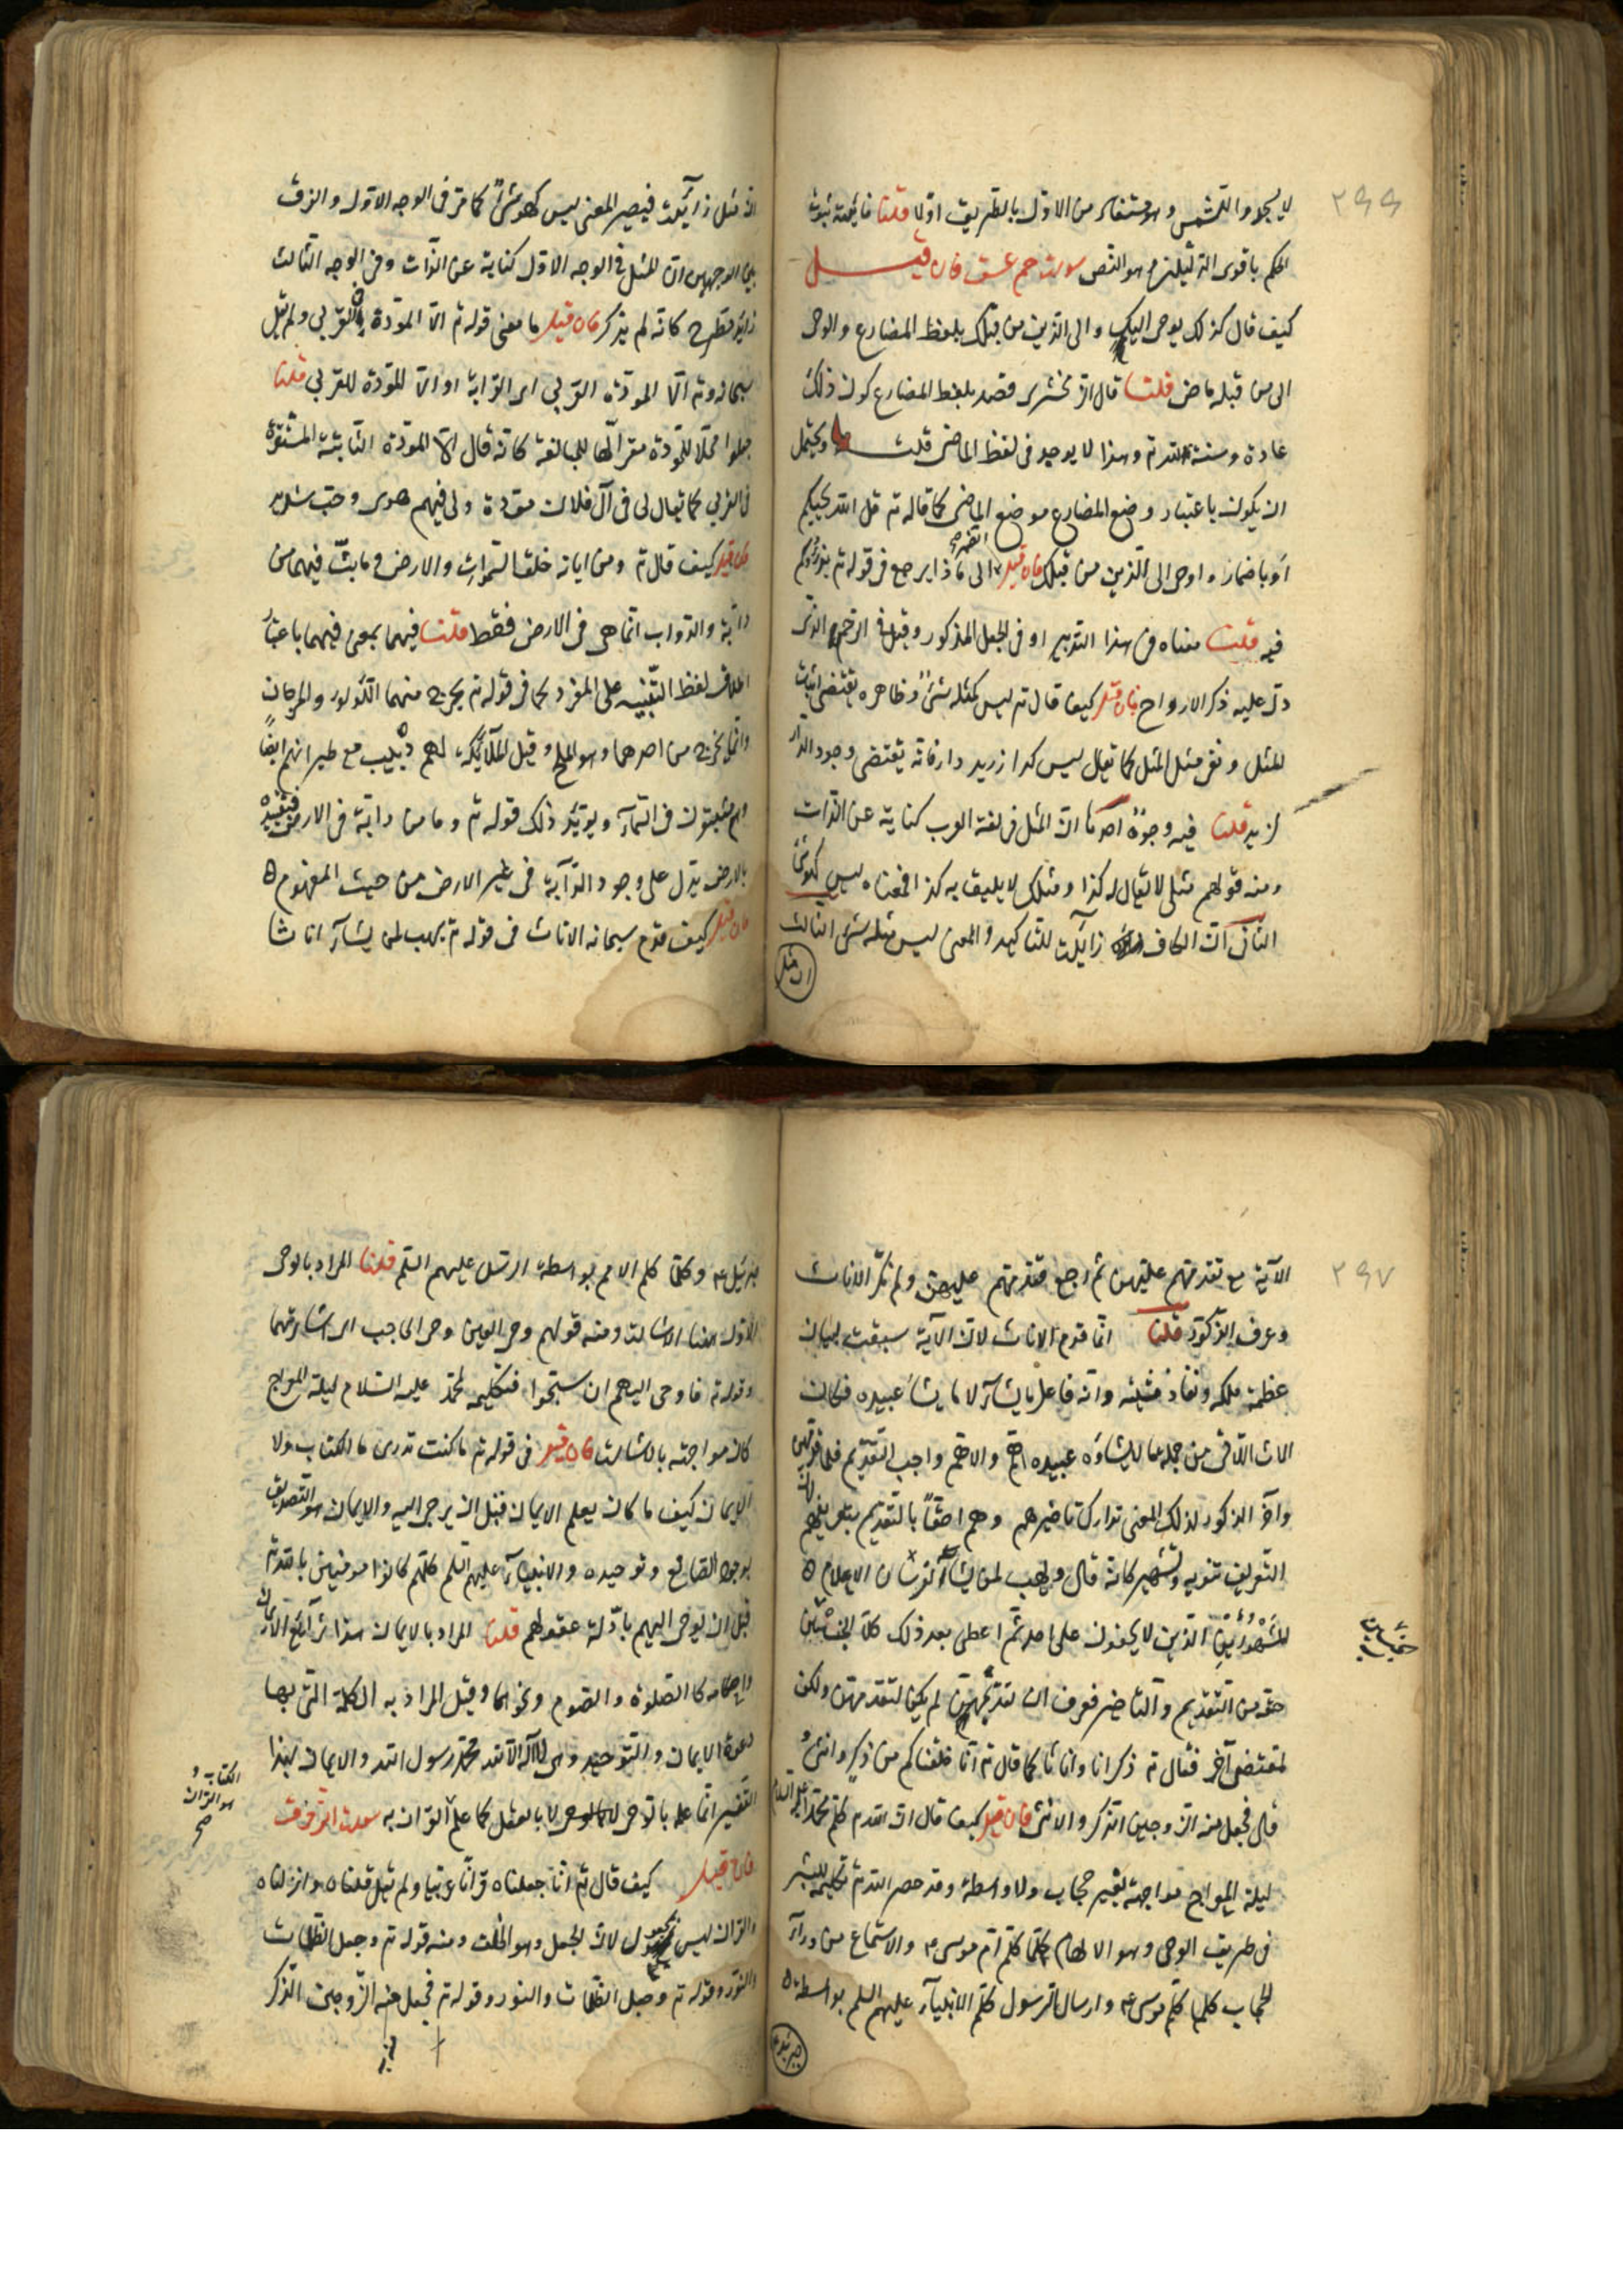 ٢٩٩
لا يسجدوا للشمس وهو مستفاد من الاول بالطريق اولا قلنا فائدته ثبوت
الحكم باقوى الدليلين وهو النص سورة حم عسق فان قيل
كيف قال كذلك يوحى اليك والى الذين من قبلك بلفظ المضارع والوحى
الى من قبله ماض قلنا قال الزمخشرى قصد بلفظ المضارع كون ذلك
عادة وسنة لله تم وهذا لا يوجد فى لفظ الماضى قلت ويحتمل
ان يكون باعتبار وضع المضارع موضع الماضى كما قاله تم قل الله يحييكم
او باضمار واوحى الى الذين من قبلك فان قيل الى ماذا يرجع الضمير فى قوله تم يذرؤكم
فيه قلنا معناه فى هذا التدبير او فى الجعل المذكور وقيل فى الرحم الذى
دل عليه ذكر الازواج فان قيل كيف قال تم ليس كمثله شئ وظاهره يقتضى اثبات
المثل ونفى مثل المثل كما يقال ليس كدار زيد دار فانه يقتضى وجود الدار
لزيد قلنا فيه وجوه احدها ان المثل فى لغة العرب كناية عن الذات
ومنه قولهم مثلى لا يقال له كذا ومثلك لا يليق به كذا فمعناه ليس كهو شئ
الثانى ان الكاف زايدة للتاكيد والمعنى ليس مثله شئ الثالث
ان مثل
ان مثل زايدة فيصير المعنى ليس كهو شئ كما مر فى الوجه الاول والفرق
بين الوجهين ان المثل فى الوجه الاول كناية عن الذات وفى الوجه الثالث
زايد مطرح كانه لم يذكر فان قيل ما معنى قوله تم الا المودة فى القربى ولم يقل
سبحانه وتم الا المودة القربى اى القرابة او الا المودة للقربى قلنا
جعلوا محلا للمودة مقرا لها للمبالغة كانه قال الا المودة الثابتة المستقرة
فى القربى كما يقال لى فى آل فلان مودة ولى فيهم هوى وحب شديد
فان قيل كيف قال تم ومن اياته خلق السموات والارض وما بث فيهما من
دابة والدواب انما هى فى الارض فقط قلنا فيهما بمعنى فيها باعتبار
اطلاق لفظ التثنيه على المفرد كما فى قوله تم يخرج منهما اللؤلؤ والمرجان
وانما يخرج من احدهما وهو الملح وقيل الملآئكة لهم دبيب مع طيرانهم ايضا
وهم مثبتون فى السمآء ويؤيد ذلك قوله تم وما من دابة فى الارض فتقييده
بالارض يدل على وجود الدآبة فى غير الارض من حيث المفهوم
فان قيل كيف قدم سبحانه الاناث فى قوله تم يهب لمن يشآء اناثا
٢٩٧
الآية مع تقدمهم عليهن ثم رجع فقدمهم عليهن ولم نكر الاناث
وعرف الذكور قلنا انما قدم الاناث لان الآية سبقت لبيان
عظمة ملكه ونفاذ مشيئته وانه فاعل ما يشآء لا ما يشآء عبيده فكان
الاناث اللاتى من جملة ما لا يشاؤه عبيده اهم والاهم واجب التقديم فلما قدمهن
واخر الذكور لذلك المعنى تدارك تاخيرهم وهم احقآء بالتقديم بتعريفهم لان
التعريف تنويه وتشهير كانه قال ويهب لمن يشآء الفرسان الاعلام
المشهورين الذين لا يخفون على احد ثم اعطى بعد ذلك كلا الجنسين
حقه من التقديم والتاخير فعرف ان تقديمهن لم يكن لتقدمهن ولكن
لمقتضى آخر فقال تم ذكرانا واناثا كما قال تم انا خلقناكم من ذكر وانثى و
قال فجعل منه الزوجين الذكر والانثى فان قيل كيف قال ان الله تم كلم محمدا عليه السلام
ليلة المعراج مواجهة بغير حجاب ولا واسطة وقد حصر الله تم تكليمه للبشر
فى طريق الوحى وهو الالهام كما كلم ام موسى م والاستماع من ورآء
الحجاب كما كلم موسى م وارسال الرسول ككلم الانبيآء عليهم السلم بواسطة
جبرئيل
جبرئيل م وكما كلم الامم بواسطة الرسل عليهم السلم قلنا المراد بالوحى
الاول هنا الاشارة ومنه قولهم وحى العين وحى الحاجب اى اشارتهما
وقوله تم فاوحى اليهم ان سبحوا فتكليمه لمحمد عليه السلام ليلة المعراج
كان مواجهة بالاشارة فان قيل فى قوله تم ما كنت تدرى ما الكتاب ولا
الايمان كيف ما كان يعلم الايمان قبل ان يوحى اليه والايمان هو التصديق
بوجود الصانع وتوحيده والانبيآء عليهم السلم كلهم كانوا مومنين بالله تم
قبل ان يوحى اليهم بادلة عقولهم قلنا المراد بالايمان هنا شرآئع الايمان
واحكامه كالصلوة والصوم ونحوها وقيل المراد به الكلمة التى بها
دعوة الايمان والتوحيد وهى لا اله الا الله محمد رسول الله والايمان بهذا
التفسير انما علمه بالوحى لا بالعقل كما علم القران به سورة الزخرف
فان قيل كيف قال تم انا جعلناه قرآنا عربيا ولم يقل قلناه وانزلناه
والقران ليس بمجعول لان الجعل وهو الخلق ومنه قوله تم وجعل الظلمات
والنور وقوله تم وجعل الظلمات والنور وقوله تم فجعل منه الزوجين الذكر
الكتاب و
هو القران
صح